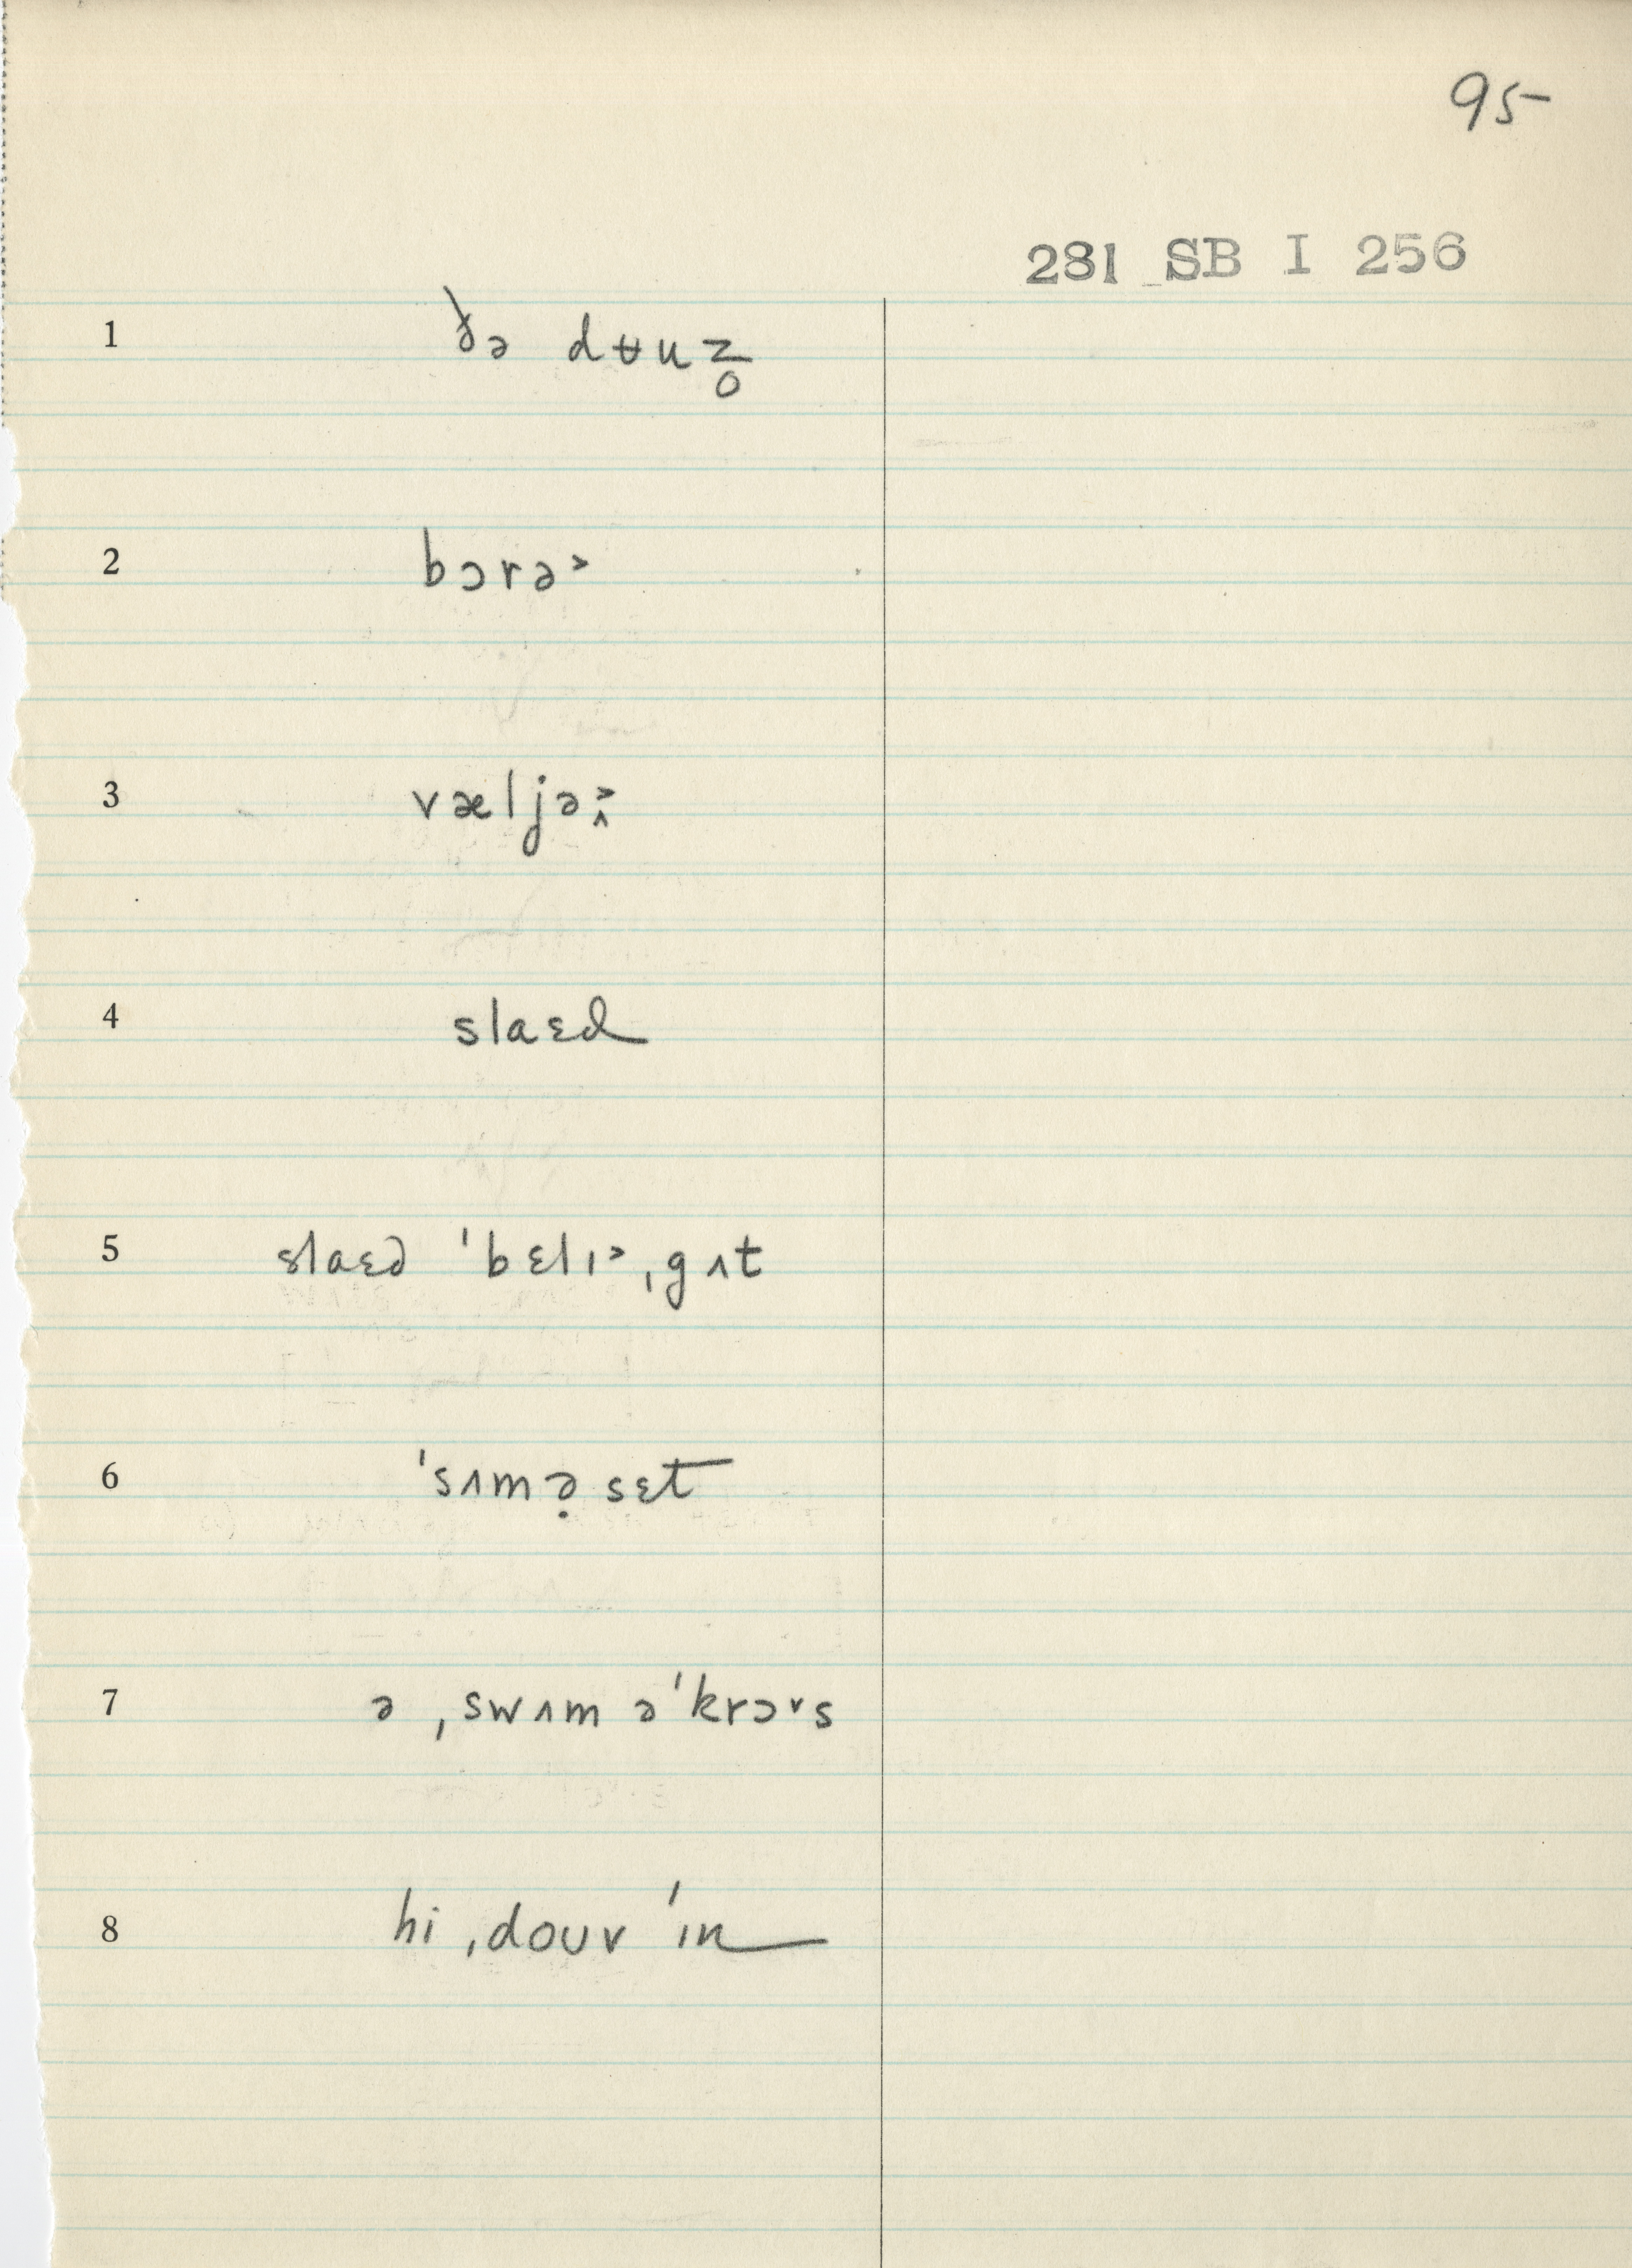 95
281 SB I 256
1 ðə dʉuz̥
2 bɔrə˃
3 væljə˃˄
4 slaɛd
5 slaɛd ˈbɛlɪ˃ ˌgʌt
6 ˈsʌmə̣sɛt
7 ə ˌswʌm əˈkrɔ˅s
8 hi ˌdouv ˈɪn